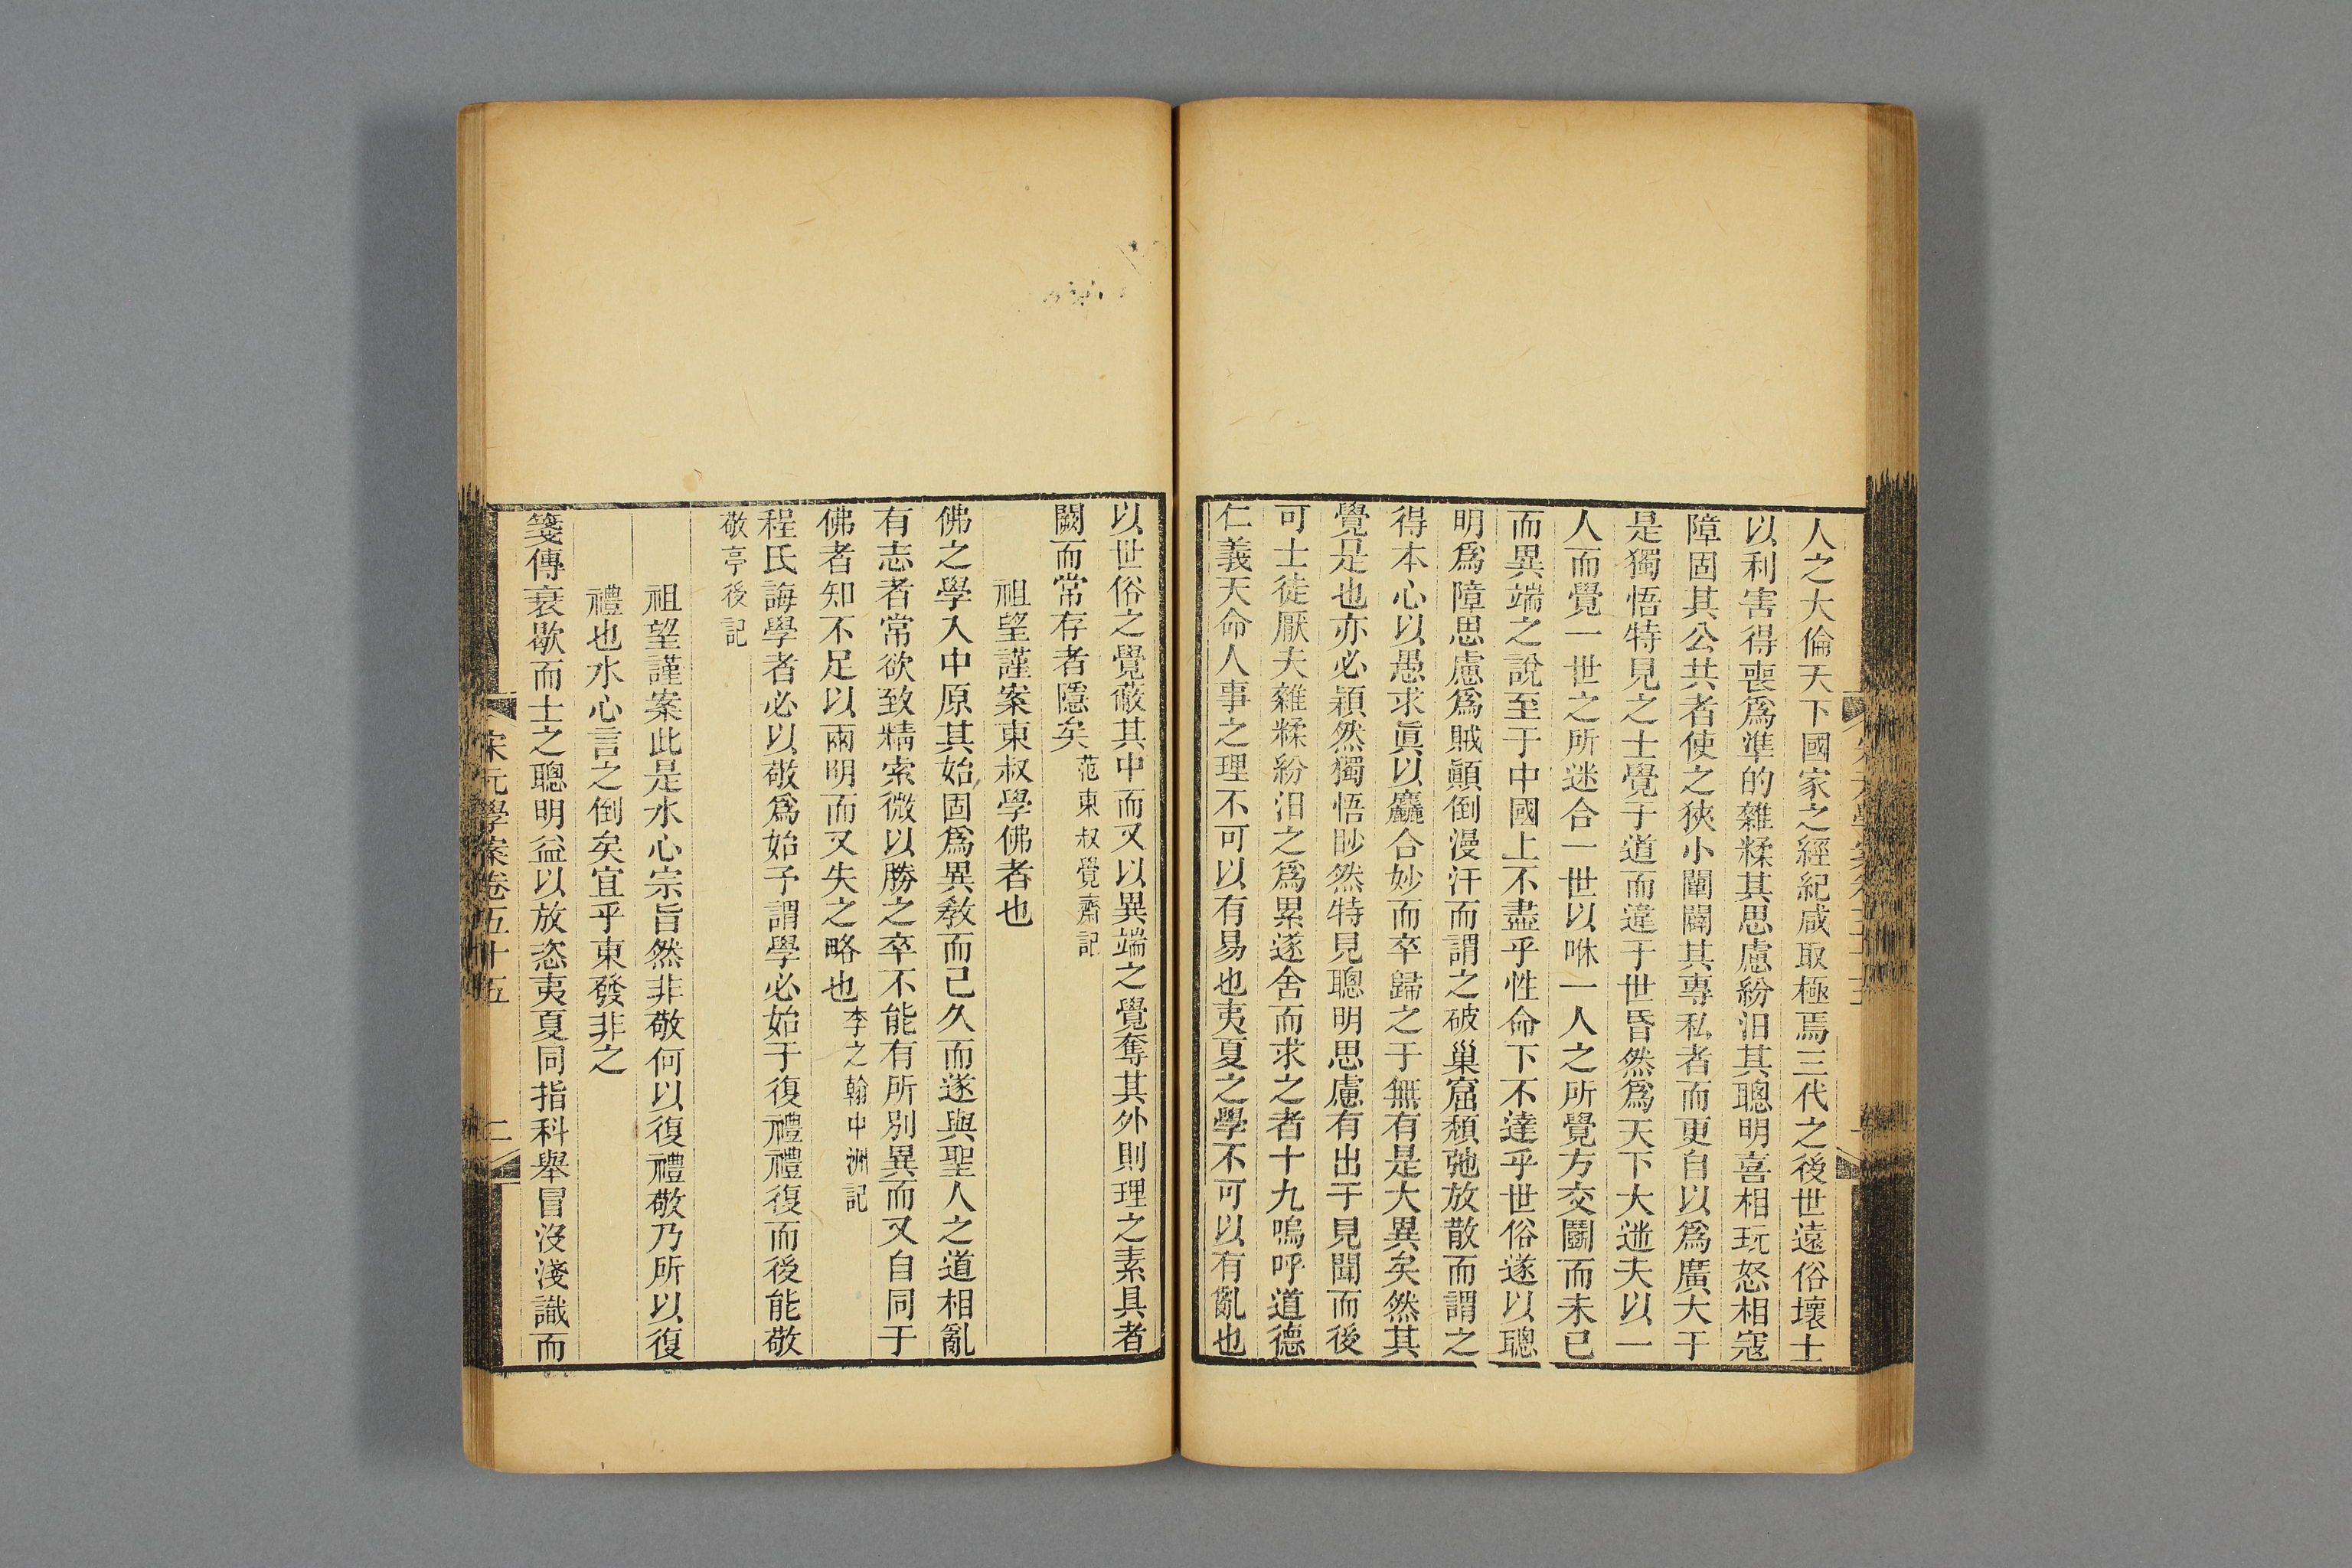 人之大倫天下國家之經紀咸取極焉三代之後世遠俗壞士
以利害得喪爲準的雜糅其思慮紛汨其聰明喜相玩怒相寇
障固其公共者使之狹小闡闢其專私者而更自以爲廣大于
是獨悟特見之士覺于道而違于世昏然爲天下大迷夫以一
人而覺一世之所迷合一世以咻一人之所覺方交鬭而未已
而異端之說至于中國上不盡乎性命下不達乎世俗遂以聰
明爲障思慮爲賊顚倒漫汗而謂之破巢窟頹弛放散而謂之
得本心以愚求眞以麤合妙而卒歸之于無有是大異矣然其
覺是也亦必穎然獨悟眇然特見聰明思慮有出于見聞而後
可士徒厭夫雜糅紛汨之爲累遂舍而求之者十九嗚呼道德
仁義天命人事之理不可以有易也夷夏之學不可以有亂也
以世俗之覺蔽其中而又以異端之覺奪其外則理之素具者
闕而常存者隱矣范東叔覺齋記
祖望謹案東叔學佛者也
佛之學入中原其始固爲異敎而已久而遂與聖人之道相亂
有志者常欲致精索微以勝之卒不能有所別異而又自同于
佛者知不足以兩明而又失之略也李之翰中洲記
程氏誨學者必以敬爲始予謂學必始于復禮禮復而後能敬
敬亭後記
祖望謹案此是水心宗旨然非敬何以復禮敬乃所以復
禮也水心言之倒矣宜乎東發非之
箋傳衰歇而士之聰明益以放恣夷夏同指科舉冒沒淺識而
宋元學案卷五十五
二